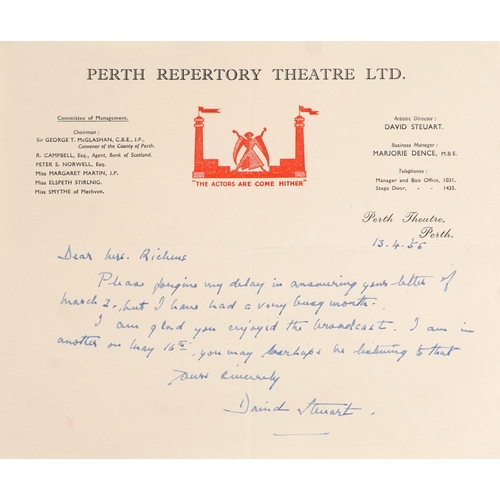 PERTH REPERTORY THEATRE LTD.
Committee of Management.
Chairman :
Sir GEORGE T. McGLASHAN, C.B.E., J.P.,
Convener of the County of Perth.
R. CAMPBELL, Esq., Agent, Bank of Scotland.
PETER S. NORWELL, Esq.
Miss MARGARET MARTIN, J.P.
Miss ELSPETH STIRLNIG.
Miss SMYTHE of Methven.
"THE ACTORS ARE COME HITHER"
Artistic Director :
DAVID STEUART.
Business Manager :
MARJORIE DENCE, M.B.E.
Telephones :
Manager and Box Office, 1031.
Stage Door, - - 1435.
Perth Theatre,
Perth.
13.4.55
Dear Mrs. Richens
Please forgive my delay in answering your letter of
March 2., but I have had a very busy month.
I am glad you enjoyed the broadcast. I am in
another on May 16th, you may perhaps be listening to that
Yours sincerely
David Steuart.